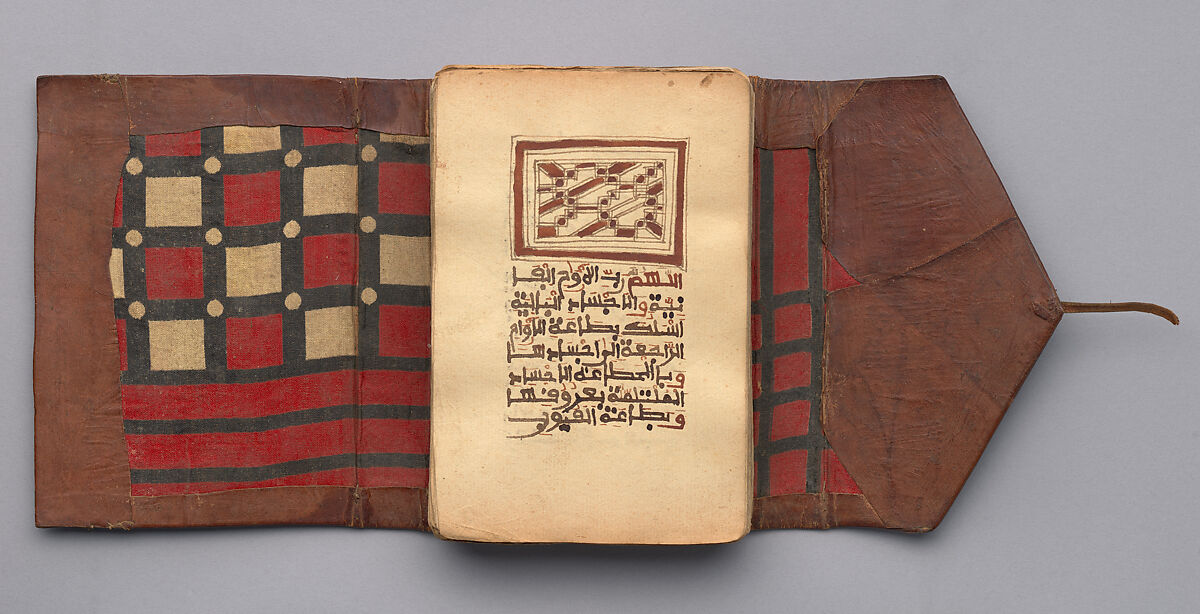 اللهم رب الأروح الفا
نية والاجساد البالية
اسلك بطاعة الاروح
الراجعة الى اجسادها
وبالطاعة الاجساد
الملتئمة بعروقها
وبطاعة القبور